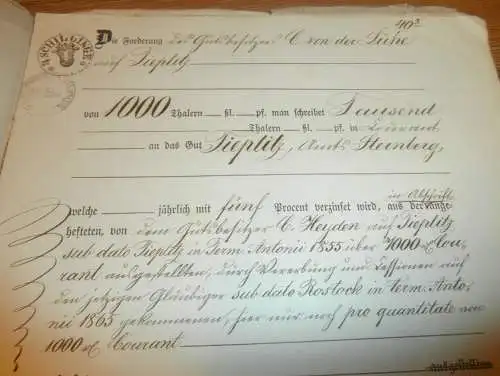 40a
4 SCHIL. GISEB
Die Forderung des Gutsbesitzers C von der Lühe
auf Tieplitz
von 1000 Thalern — ßl. — pf. man schreibet Tausend
Thalern — ßl. — pf. in Courant
an das Gut Tieplitz, Amts Sternberg,
welche — jährlich mit fünf Procent verzinset wird, aus der in Abschrift ange-
hefteten, von dem Gutsbesitzer C. Heyden auf Tieplitz
sub dato Tieplitz in Term. Antonii 1855 über 7000 rℓ Cou-
rant ausgestellten, durch Vererbung und Cessionen auf
den jetzigen Gläubiger sub dato Rostock in term. Anto-
nii 1865 gekommenen, hier nur noch pro quantitate von
1000 rℓ Courant
ausgestellten